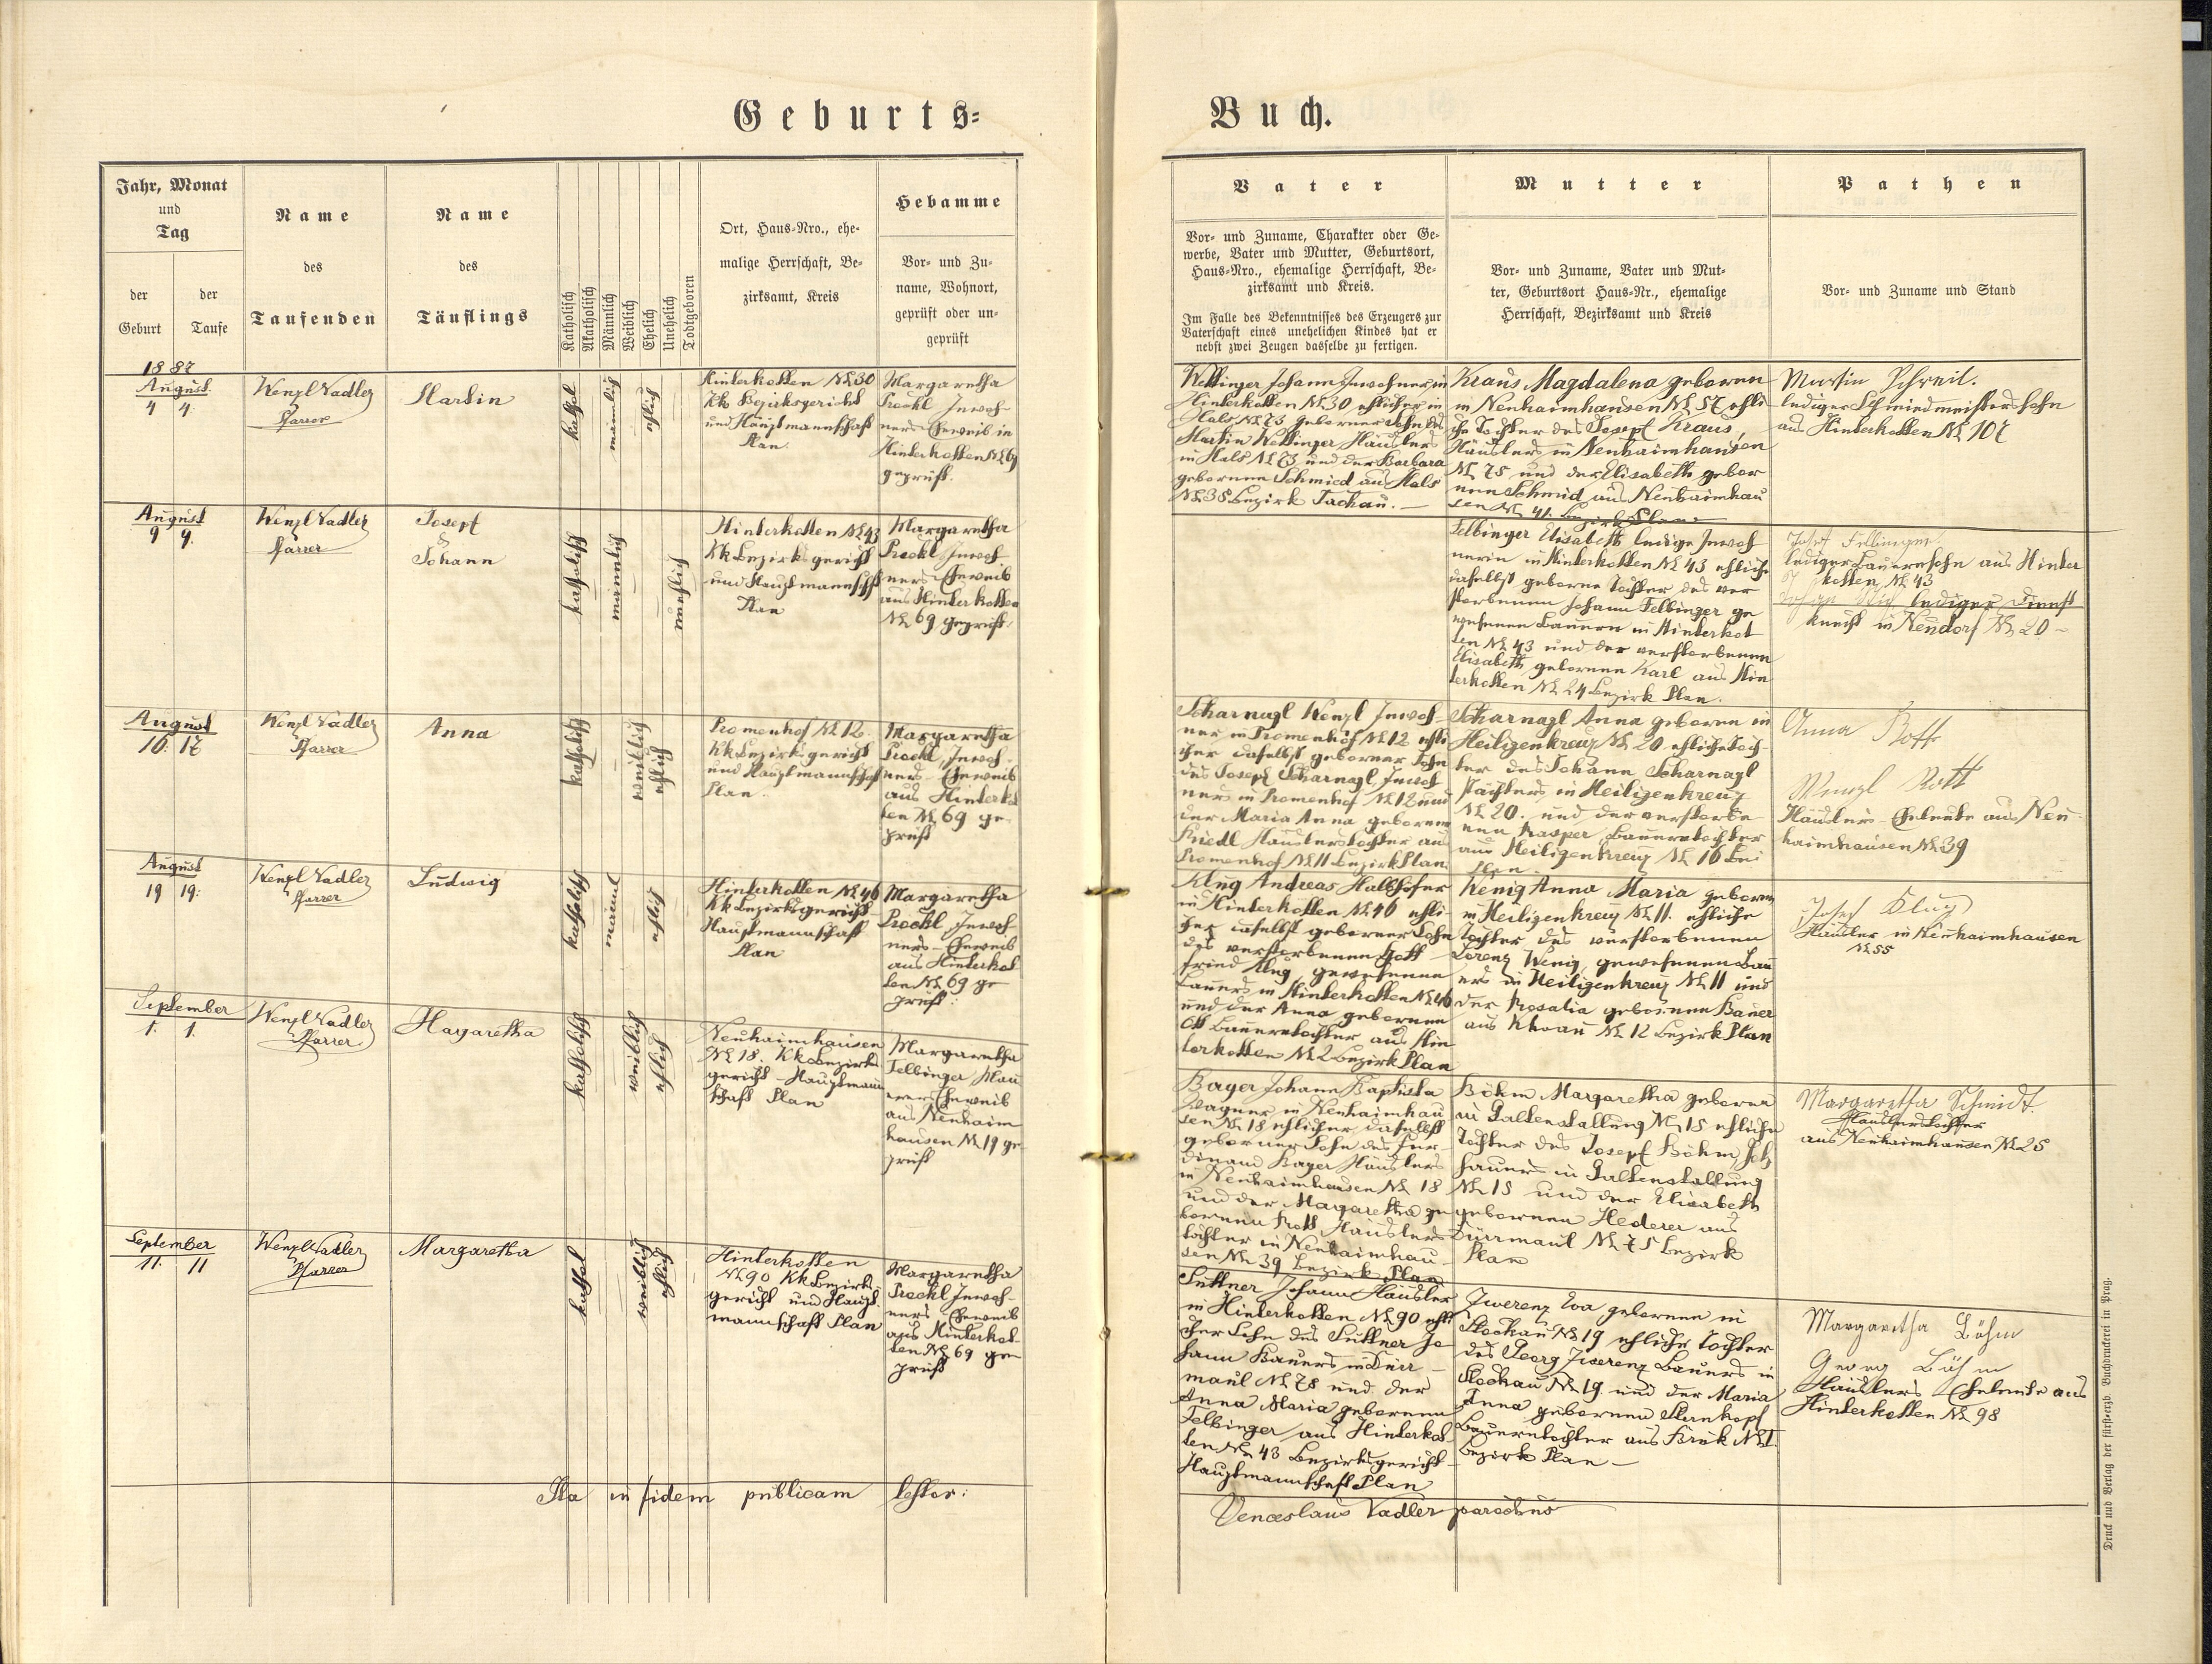 Geburts=
Buch.
Jahr, Monat
und
Tag
der
Geburt
der
Taufe
Name
des
Taufenden
Name
des
Täuflings
Katholisch
Akatholisch
Männlich
Weiblich
Ehelich
Unehelich
Todtgeboren
Ort, Haus=Nro., ehe=
malige Herrschaft, Be=
zirksamt, Kreis
Hebamme
Vor= und Zu=
name, Wohnort,
geprüft oder un=
geprüft
Vater
Vor= und Zuname, Charakter oder Ge=
werbe, Vater und Mutter, Geburtsort,
Haus=Nro., ehemalige Herrschaft, Be=
zirksamt und Kreis.
Im Falle des Bekenntnisses des Erzeugers zur
Vaterschaft eines unehelichen Kindes hat er
nebst zwei Zeugen dasselbe zu fertigen.
Mutter
Vor= und Zuname, Vater und Mut=
ter, Geburtsort Haus=Nr., ehemalige
Herrschaft, Bezirksamt und Kreis
Pathen
Vor= und Zuname und Stand
1887
August
4 4.
Wenzl Nadler
Pfarrer
Martin
kathol
männlich
ehlich
Hinterkotten № 30
kk Bezirksgericht
und Hauptmannschaft
Plan
Margaretha
Prockl Inwoh-
ners-Eheweib in
Hinterkotten № 69
geprüft.
Johann Inwohner in
Hinterkotten № 30 ehlicher in
Hals № 73 geborner Sohn des
Martin Häuslers
in Hals № 73 und der Barbara
gebornen Schmied aus Hals
№ 38 Bezirk Tachau.
Kraus Magdalena geboren
in Neuhaimhausen № 57 ehli
che Tochter des Josepf Kraus,
Häuslers in Neuhaimhausen
№ 75 und der Elisabeth gebor
nen Schmid aus Neuhaimhau
sen № 41. Bezirk Plan
Martin
lediger Schmiedmeisterssohn
aus Hinterkotten № 107
August
9 9.
Wenzl Nadler
Pfarrer
Josepf
&
Johann
katholisch
männlich
unehlich
Hinterkotten № 43
kk Bezirksgericht
und Hauptmannschft
Plan
Margaretha
Prockl Inwoh-
ners-Eheweib
aus Hinterkotten
№ 69 geprüft.
Felbinger Elisabeth ledige Inwoh
nerin in Hinterkotten № 43 ehliche
daselbst geborne Tochter des ver
storbenen Johann Felbinger ge
wesenen Bauern in Hinterkot
ten № 43 und der verstorbenen
Elisabeth gebornen Karl aus Hin
terkotten № 24 Bezirk Plan.
Josef Felbinger
lediger Bauernsohn aus Hinter
kotten № 43
lediger Dienst
knecht in Neudorf № 20 -
August
16. 17
Wenzl Nadler
Pfarrer
Anna
katholisch
weiblich
ehlich
Promenhof № 12.
kk Bezirksgericht
und Hauptmannschaft
Plan.
Margaretha
Prockl, Inwoh-
ners-Eheweib
aus Hinterkot
ten № 69 ge-
prüft
Scharnagl Wenzl Inwoh-
ner in Promenhof № 12 ehli
cher daselbst geborner Sohn
des Josepf Scharnagl, Inwoh
ners in Promenhof № 12 und
der Maria Anna gebornen
Riedl Häuslerstochter aus
Promenhof № 11 Bezirk Plan.
Scharnagl Anna geboren in
Heiligenkreuz № 20 ehliche Toch-
ter des Johann Scharnagl
Pächters in Heiligenkreuz
№ 20. und der verstorbe
nen Kasper, Bauerntochter
aus Heiligenkreuz № 16 Bei
Plan
Anna Rott
Wenzl Rott
Häuslers-Eheleute aus Neu
haimhausen № 39
August
19 19.
Wenzl Nadler
Pfarrer
Ludwig
katholisch
männl
ehlich
Hinterkotten № 46
kk Bezirksgericht
Hauptmannschaft
Plan
Margaretha
Prockl, Inwoh-
ners-Eheweib
aus Hinterkot
ten № 69 ge
prüft.
Klug Andreas Halbhofer
in Hinterkotten № 46 ehli-
cher daselbst geborner Sohn
des verstorbenen Gott-
fried Klug, gewesenen
Bauers in Hinterkotten № 46
und der Anna gebornen
Ott Bauerntochter aus Hin
terkotten № 2 Bezirk Plan
Wenig Anna Maria geboren
in Heiligenkreuz № 11. ehliche
Tochter des verstorbenen
Lorenz Wenig gewesenen Bau
ers in Heiligenkreuz № 11 und
der Rosalia gebornen Bauer
aus Khoau № 12 Bezirk Plan
Josef Klug
Häusler in Neuhaimhausen
№ 55
September
1. 1.
Wenzl Nadler
Pfarrer
Magaretha
katholisch
weiblich
ehlich
Neuhaimhausen
№ 18. kk Bezirks
gericht-Hauptmann
schaft Plan
Margaretha
Felbinger Mau
rers-Eheweib
aus Neuhaim
hausen № 19 ge-
prüft
Bayer Johann Baptista
Wagner in Neuhaimhau
sen № 18 ehlicher daselbst
geborner Sohn des Fer-
dinand Bayer Häuslers
in Neuhaimhausen № 18
und der Margaretha ge
bornen Rott Häuslers
tochter in Neuhaimhau-
sen № 39 Bezirk Plan
Böhm Margaretha geboren
in Galtenstallung № 15 ehliche
Tochter des Josepf Böhm, Holz
hauers in Galtenstallung
№ 15 und der Elisabeth
gebornen Hederer aus
Dürrmaul № 75 Bezirk
Plan
Margaretha Schmidt
Häuslerstochter
aus Neuhaimhausen № 25
September
11. 11
Wenzl Nadler
Pfarrer
Margaretha
kathol
weiblich
ehlich
Hinterkotten
№ 90 kk Bezirks
gericht und Haupt
mannschaft Plan
Margaretha
Prockl Inwoh-
ners Eheweib
aus Hinterkot
ten № 69 ge-
prüft
Süttner Johann Häusler
in Hinterkotten № 90 ehli
cher Sohn des Süttner Jo
hann Bauers in Dürr-
maul № 78 und der
Anna Maria gebornen
Felbinger aus Hinterkot-
ten № 43 Bezirksgericht-
Hauptmannschaft Plan
Zwerenz Eva geboren in
Stockau № 19 ehliche Tochter
des Georg Zwerenz Bauers in
Stockau № 19 und der Maria
Anna gebornen Sternkopf
Bauerntochter aus Brük № 1.
Bezirk Plan -
Margaretha Böhm
Georg Böhm
Häuslers Eheleute aus
Hinterkotten № 98
Ita in fidem publicam testor:
Venceslaus Nadler parochus
Druck und Verlag der fürsterzb. Buchdruckerei in Prag.